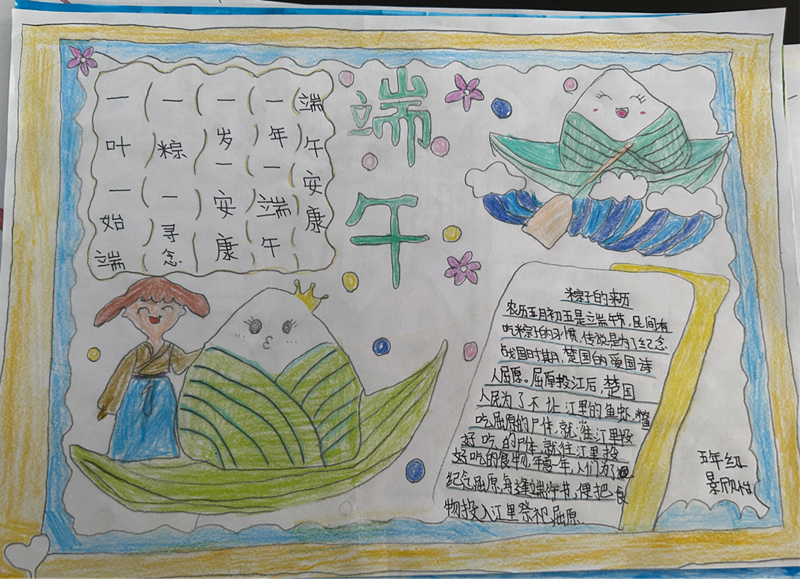 端午安康
一年一端午
一岁一安康
一粽一寻念
一叶一始端
端午
粽子的来历
农历五月初五是立端午节,民间有
吃粽子的习惯,传说是为了纪念
战国时期,楚国的爱国诗
人屈原。屈原投江后,楚国
人民为了不让江里的鱼虾
吃屈原的尸体,就往江里投
好吃的尸体,就往江里投
好吃的食物,年一年,人们为了
纪念屈原,每逢端午节,便把食
物投入江里祭祀屈原
五年级
景欣